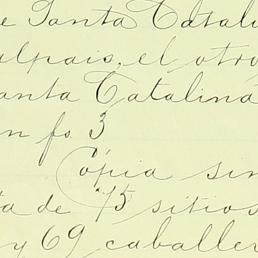 e Santa Catali
alpais, el otro
anta Catalina
n fs 3
Cópia sim
ta de 75 sitios
y 69 caballer